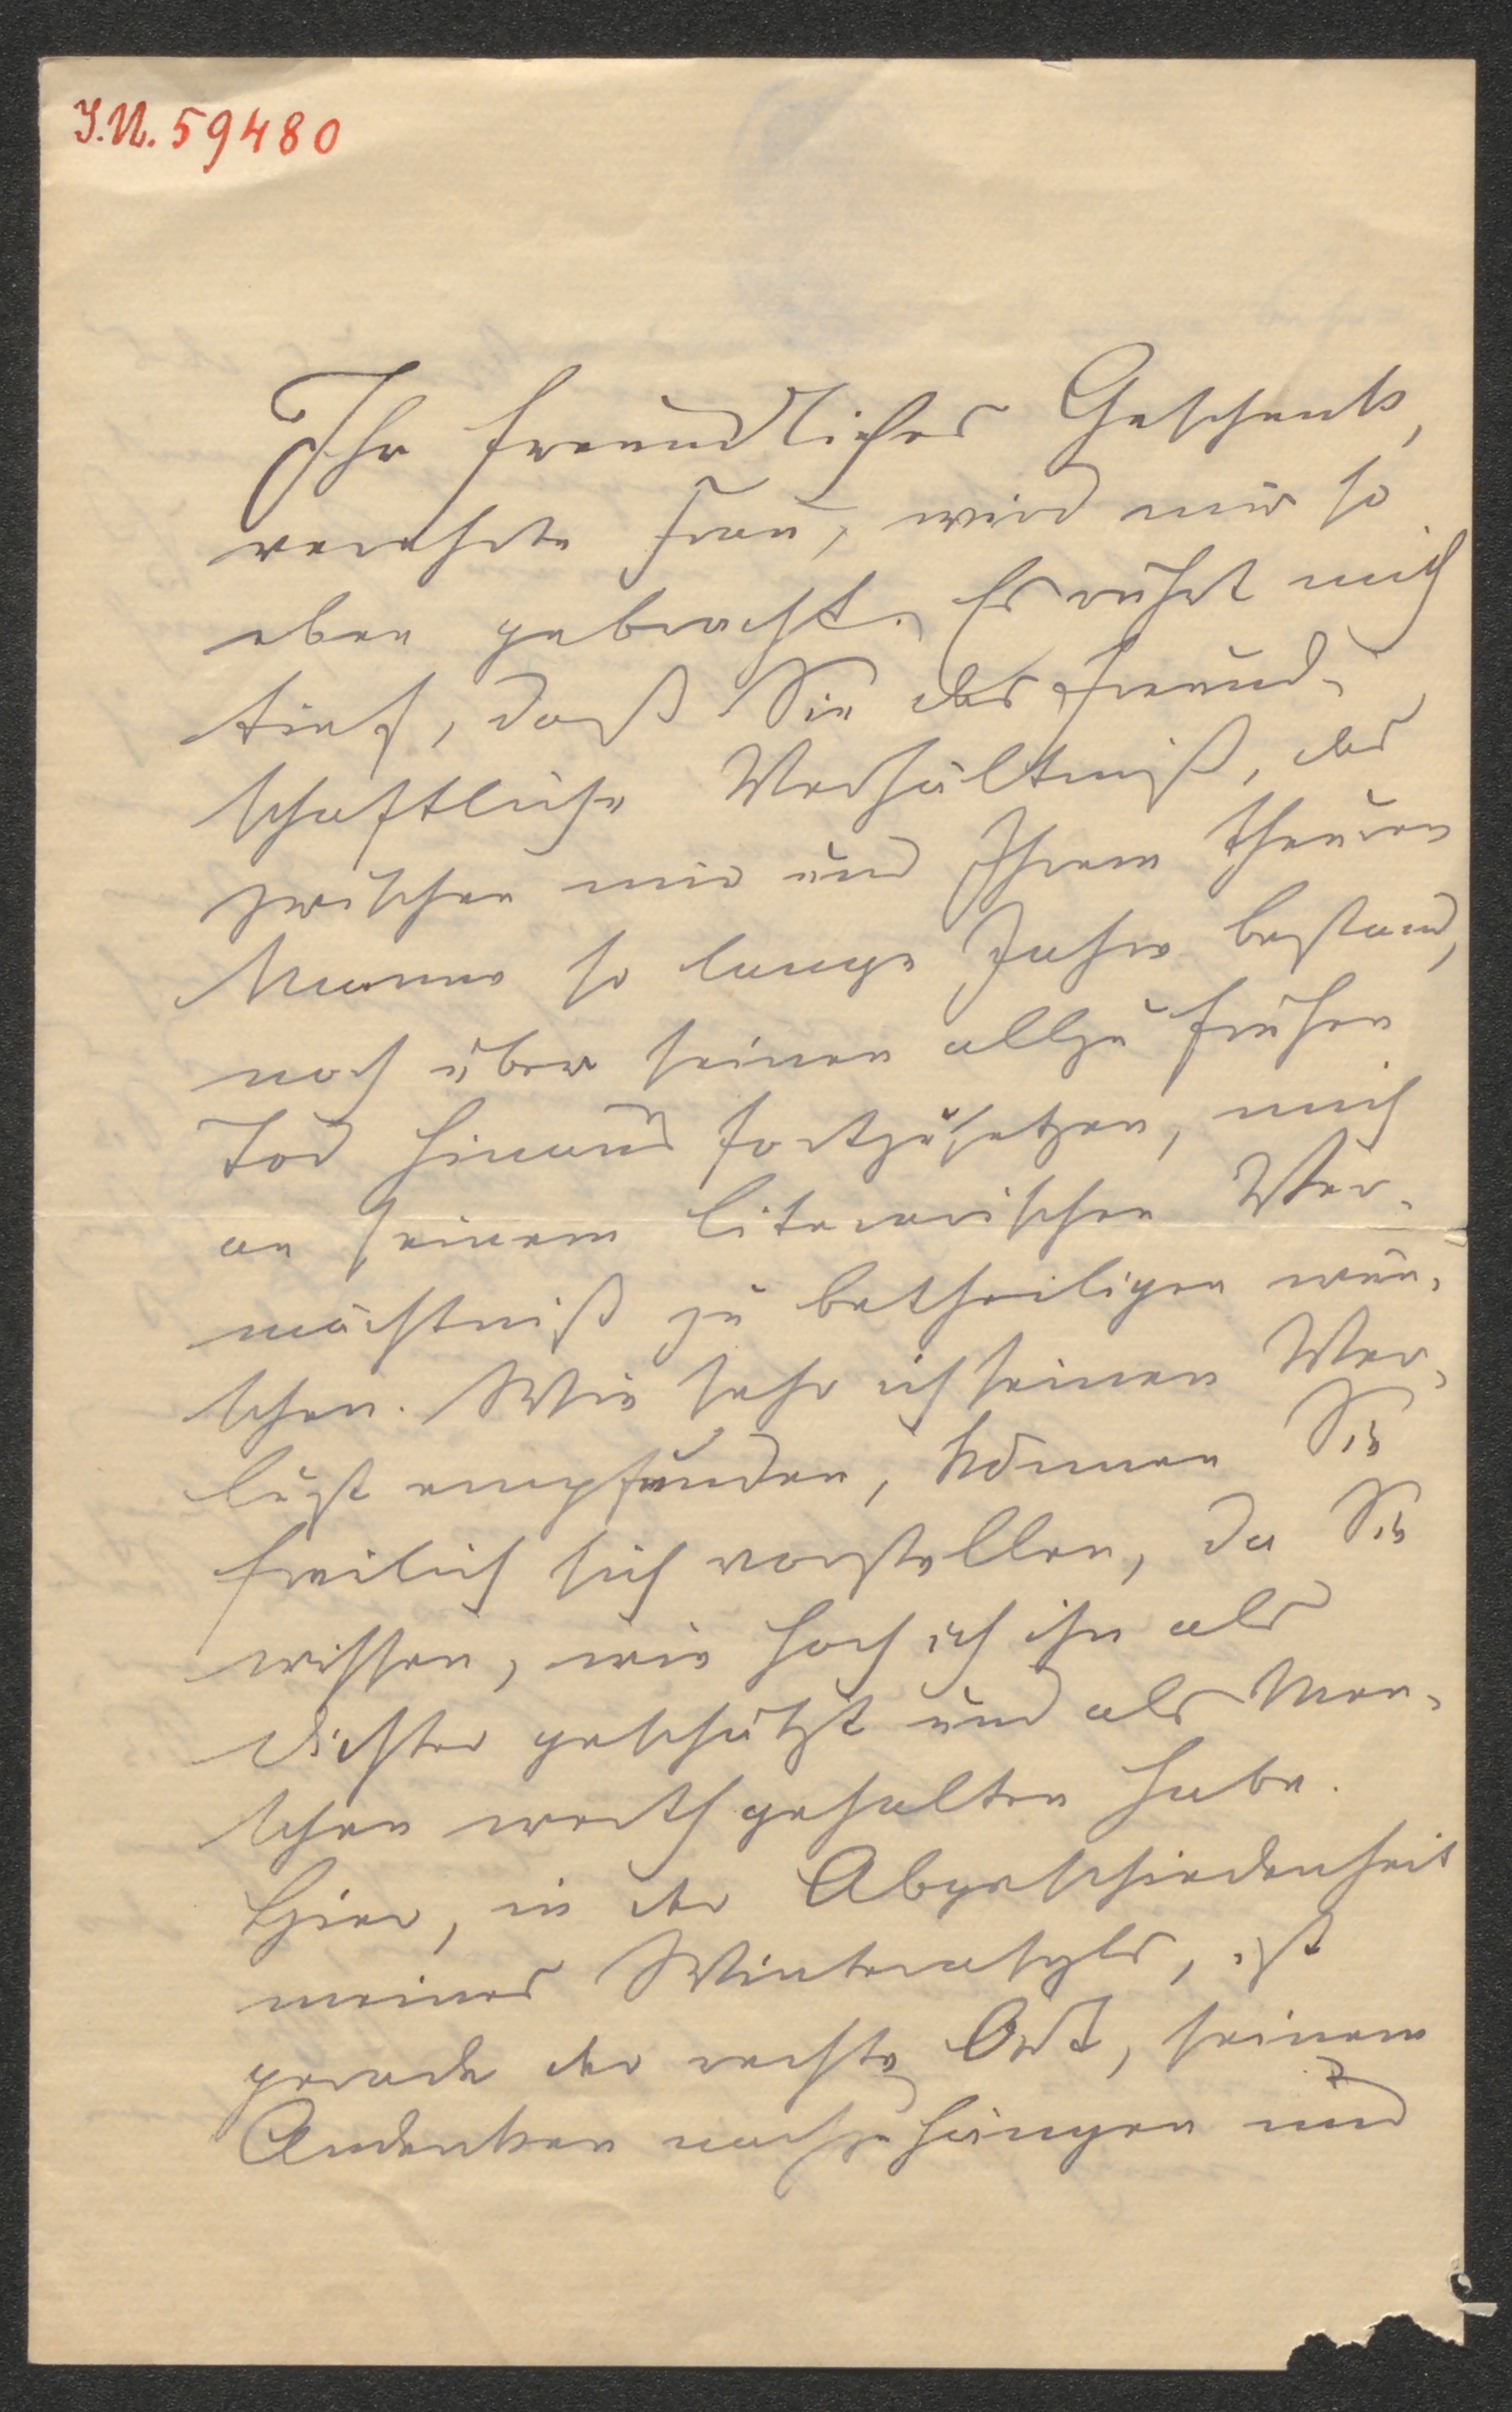 I.N. 59480
Ihr freundliches Geschenk,
verehrte Frau, wird mir so
eben gebracht. Es rührt mich
tief, daß Sie das freund-
schaftliche Verhältniß, das
zwischen mir und Ihrem theuren
Manne so lange Jahre bestand,
noch über seinen allzu frühen
Tod hinaus fortzusetzen, mich
an seinem literarischen Ver-
mächtniß zu betheiligen wün-
schen. Wie sehr ich seinen Ver-
lust empfunden, können Sie
freilich sich vorstellen, da Sie
wissen, wie hoch ich ihn als
Dichter geschätzt und als Men-
schen werth gehalten habe.
Hier, in der Abgeschiedenheit
meines Winterasyls, ist
gerade der rechte Ort, seinem
Andenken nachzuhängen und